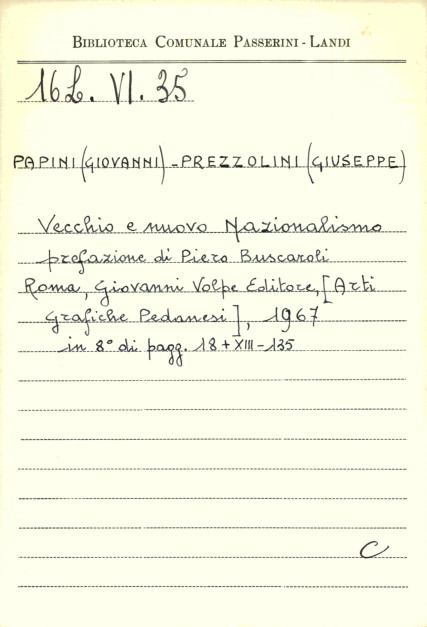 BIBLIOTECA COMUNALE PASSERINI - LANDI
16L. VI. 35
PAPINI (GIOVANNI) - PREZZOLINI (GIUSEPPE)
Vecchio e nuovo Nazionalismo
prefazione di Piero Buscaroli
Roma, Giovanni Volpe Editore, [Arti
Grafiche Pedanesi], 1967
in 8° di pagg. 18 + XIII - 135
C